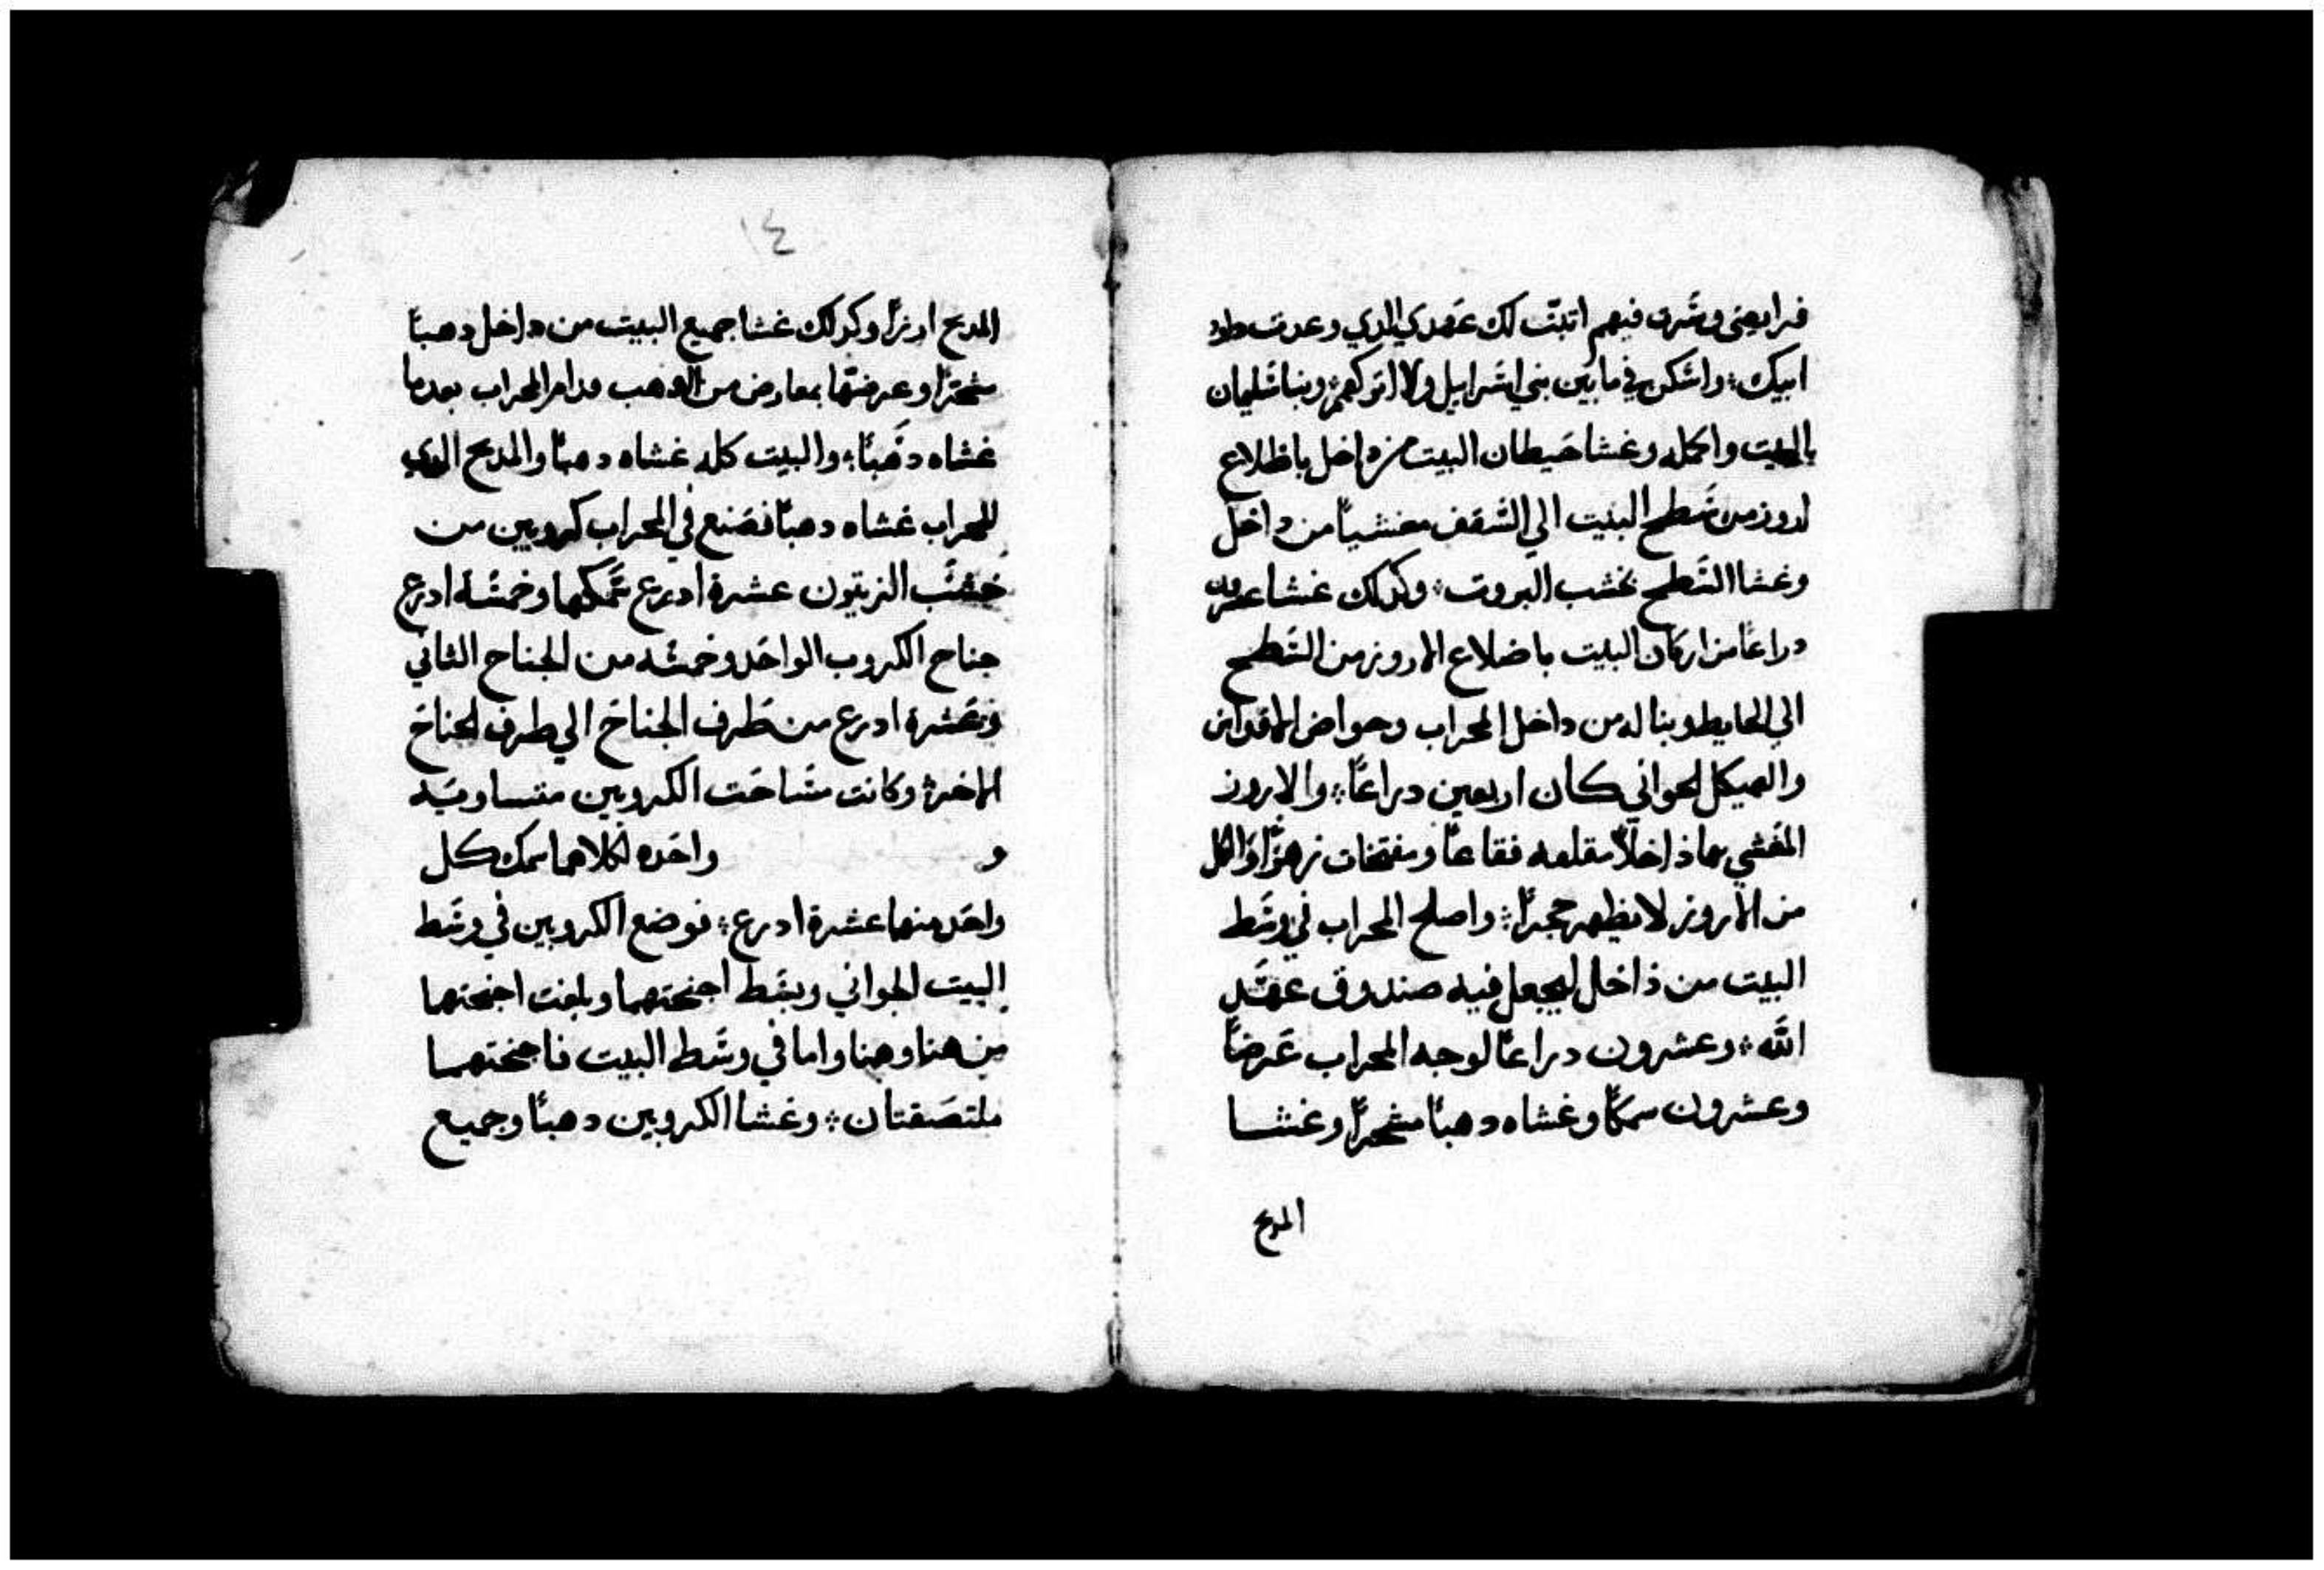 فرايضي وسرت فيهم اتبت لك عهدي الدي وعدت داود
ابيك؛ واسكن في ما بين بني اسراييل ولا اتركهم؛ وبنا سليمان
البيت واكمله وغشا حيطان البيت من داخل باظلاع
ارز من سطح البيت الي السقف مغشياً من داخل
وغشا السطح بخشب البروت؛ وكدلك غشا عشرون
دراعاً من اركان البيت باضلاع الارز من السطح
الي الحايط وبنا له من داخل المحراب وحواض الاقداس
والهيكل الجواني كان اربعين دراعاً؛ والارز
المغشي بها داخلاً مقلعه فقاعاً ومفتحات زهراً والكل
من الارز لا يظهر حجراً؛ واصلح المحراب في وسط
البيت من داخل ليجعل فيه صندوق عهد
الله؛ وعشرون دراعاً لوجه المحراب عرضاً
وعشرون سمكاً وغشاه دهباً مشحراً وغشا
المدبح
١٤
المدبح ارزاً وكدلك غشا جميع البيت من داخل دهباً
مشحراً وعرضها بمعارض من الدهب قدام المحراب بعدما
غشاه دهباً؛ والبيت كله غشاه دهباً والمدبح الدي
للمحراب غشاه دهباً فصنع في المحراب كروبين من
خشب الزيتون عشرة ادرع سمكها وخمسة ادرع
جناح الكروب الواحد وخمسه من الجناح الثاني
وعشرة ادرع من طرف الجناح الي طرف الجناح
الاخر؛ وكانت مساحت الكروبين متساويه
و واحده لكلاهما سمك كل
واحد منهما عشرة ادرع؛ فوضع الكروبين في وسط
البيت الجواني وبسط اجنحتهما وبلغت اجنحتها
من هنا وهنا واما في وسط البيت فاجنحتهما
ملتصقتان؛ وغشا الكروبين دهباً وجميع